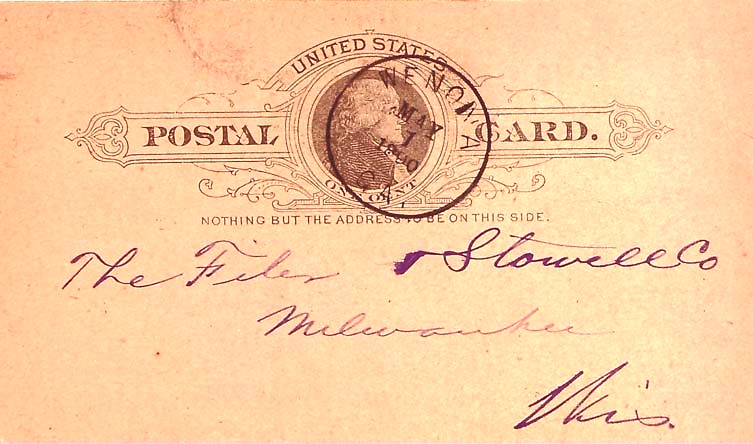 UNITED STATES
POSTAL CARD.
ONE CENT
WENONA
MAY
1
1890
NOTHING BUT THE ADDRESS TO BE ON THIS SIDE.
The Filer & Stowell Co
Milwaukee
Wis.